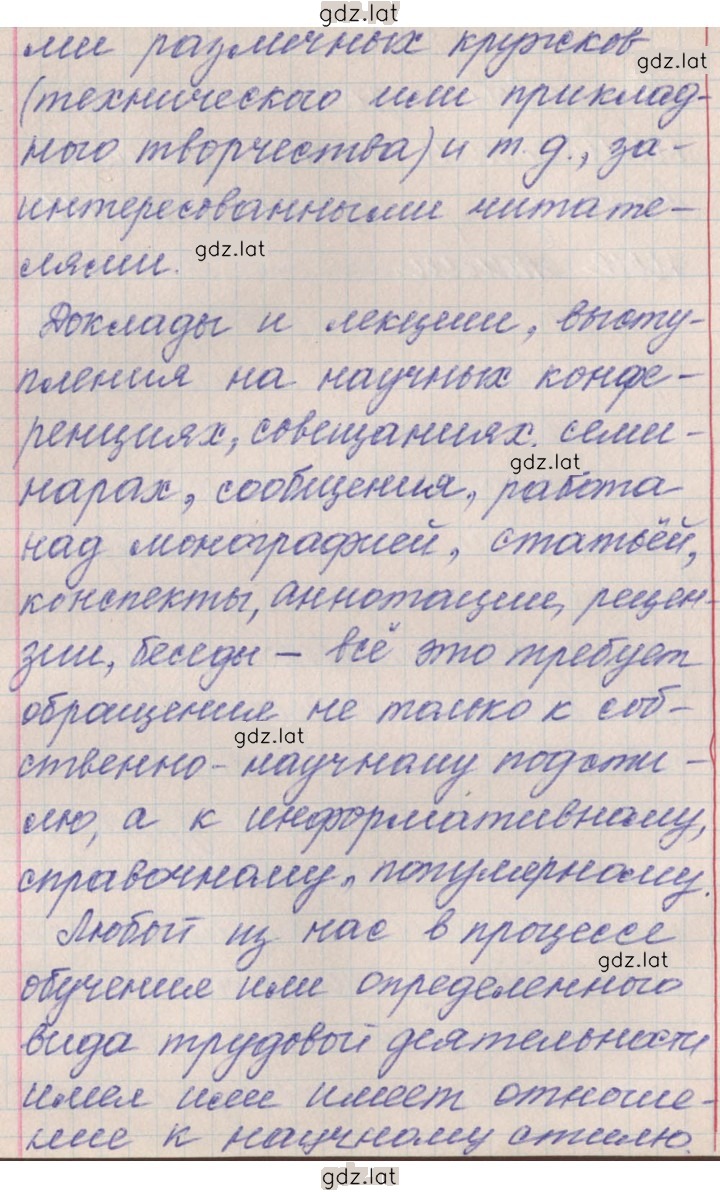 gdz.lat
ми различных кружков
gdz.lat
(технического или приклад-
ного творчества) и т.д., за-
интересованными читате-
gdz.lat
лями.
Доклады и лекции, высту-
пления на научных конфе-
ренциях, совещаниях. семи-
gdz.lat
нарах, сообщения, работа
над монографией, статьёй,
конспекты, аннотации, рецен-
зии, беседы – всё это требует
обращения не только к соб-
gdz.lat
ственно-научному подсти-
лю, а к информативному,
справочному, популярному.
Любой из нас в процессе
gdz.lat
обучения или определенного
вида трудовой деятельности
имел или имеет отноше-
ние к научному стилю.
gdz.lat